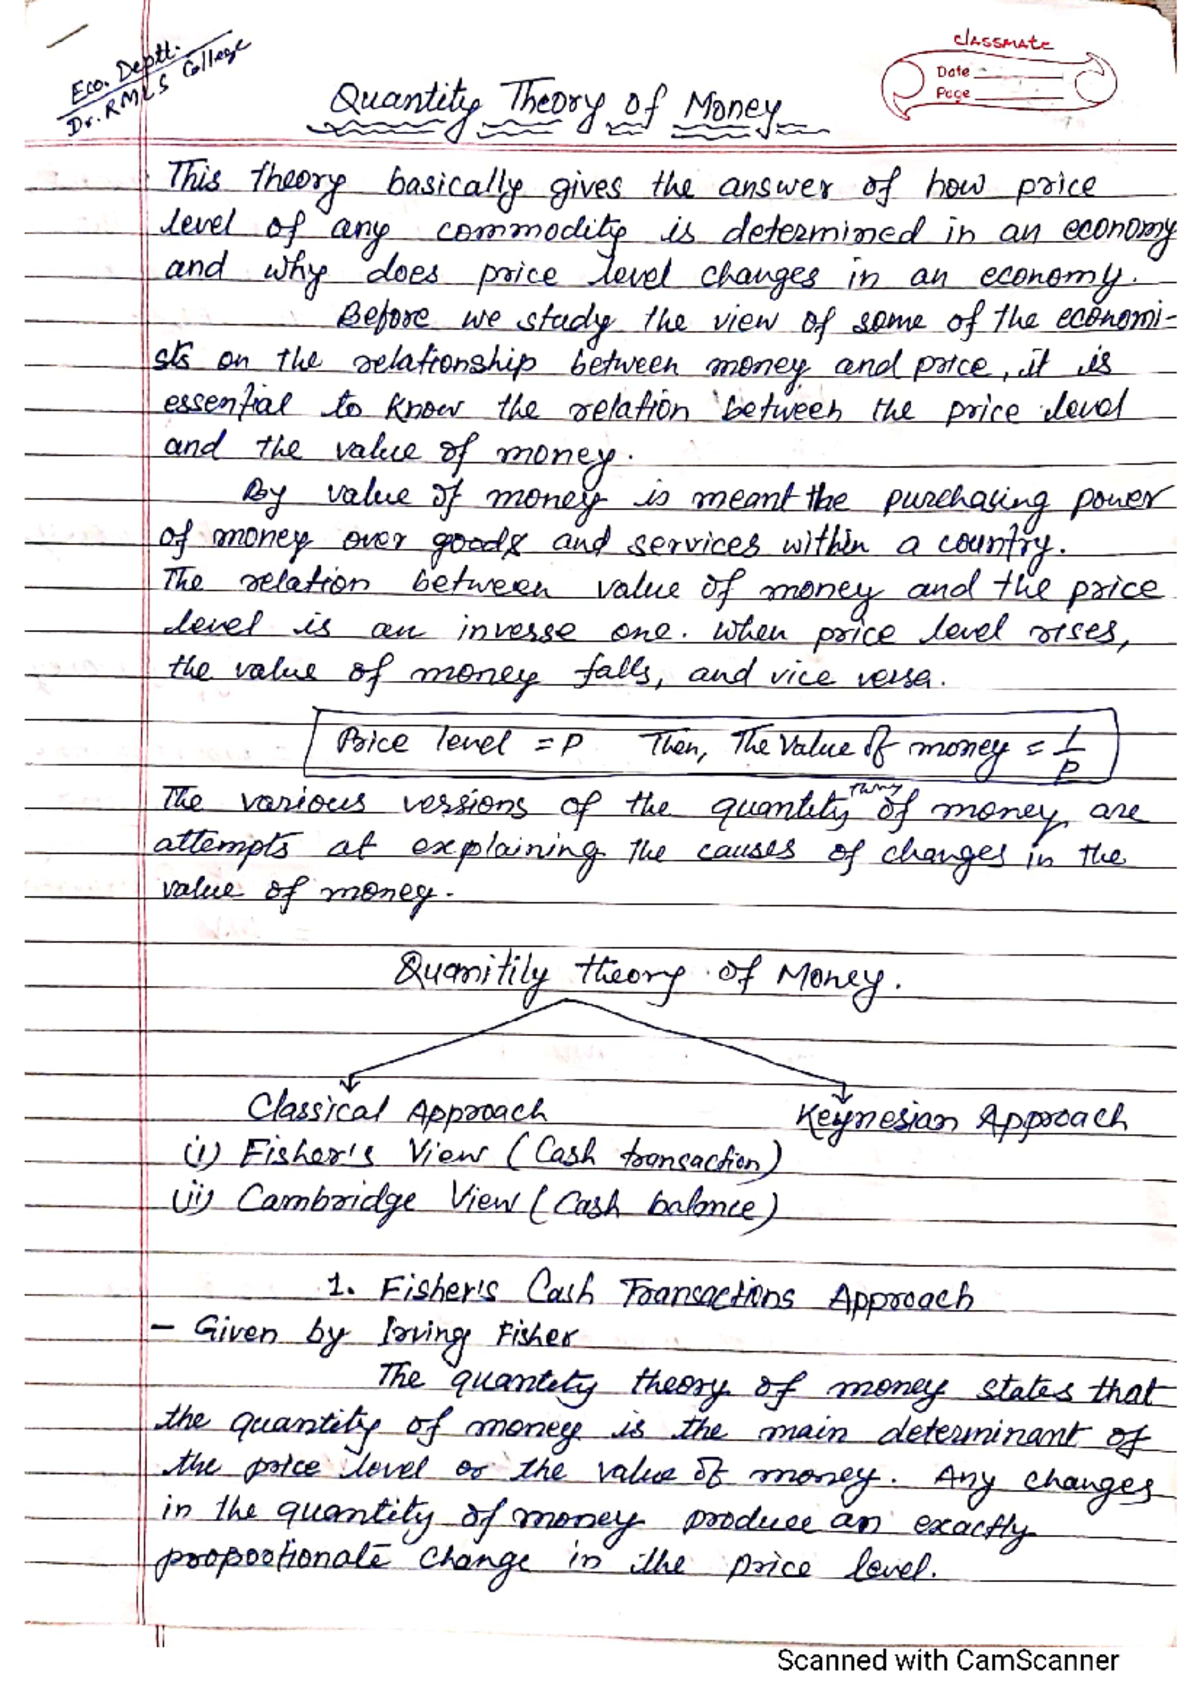 Eco. Deptt.
Dr. RMLS College
classmate
Date
Page
Quantity Theory of Money
This theory basically gives the answer of how price
level of any commodity is determined in an economy
and why does price level changes in an economy.
Before we study the view of some of the economi-
sts on the relationship between money and price, it is
essential to know the relation between the price level
and the value of money.
By value of money is meant the purchasing power
of money over goods and services within a country.
The relation between value of money and the price
level is an inverse one. When price level rises,
the value of money falls, and vice versa.
Price level = P Then, The Value of money = 1/P
The various versions of the quantity theory of money are
attempts at explaining the causes of changes in the
value of money.
Quanitily theory of Money.
Classical Approach Keynesian Approach
(i) Fisher's View (Cash transaction)
(ii) Cambridge View (Cash balance)
1. Fisher's Cash Transactions Approach
- Given by Irving Fisher
The quantity theory of money states that
the quantity of money is the main determinant of
the price level or the value of money. Any changes
in the quantity of money produce an exactly
proportionate change in the price level.
Scanned with CamScanner